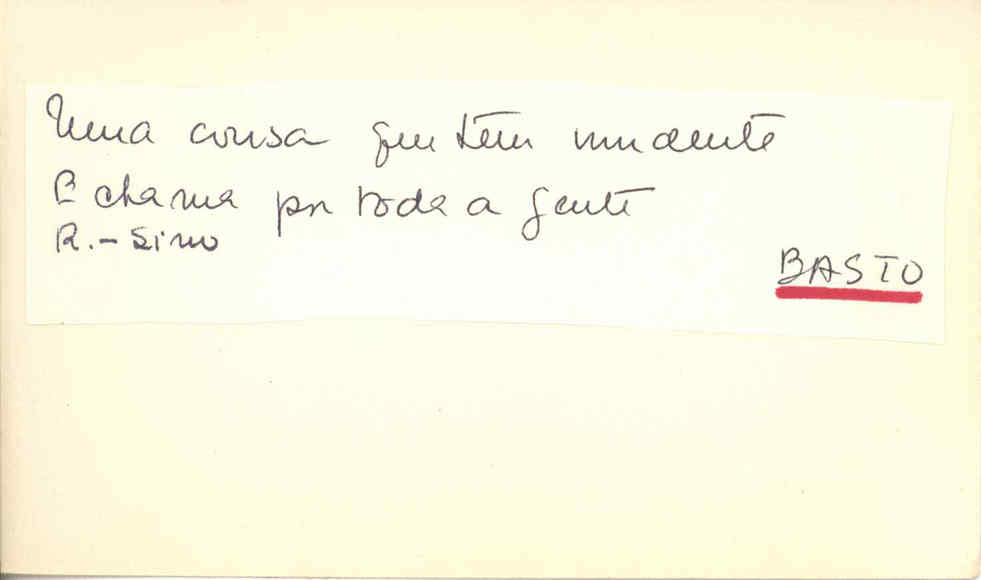 Uma cousa que tem um dente
E chama por toda a gente
R. - Sino
BASTO